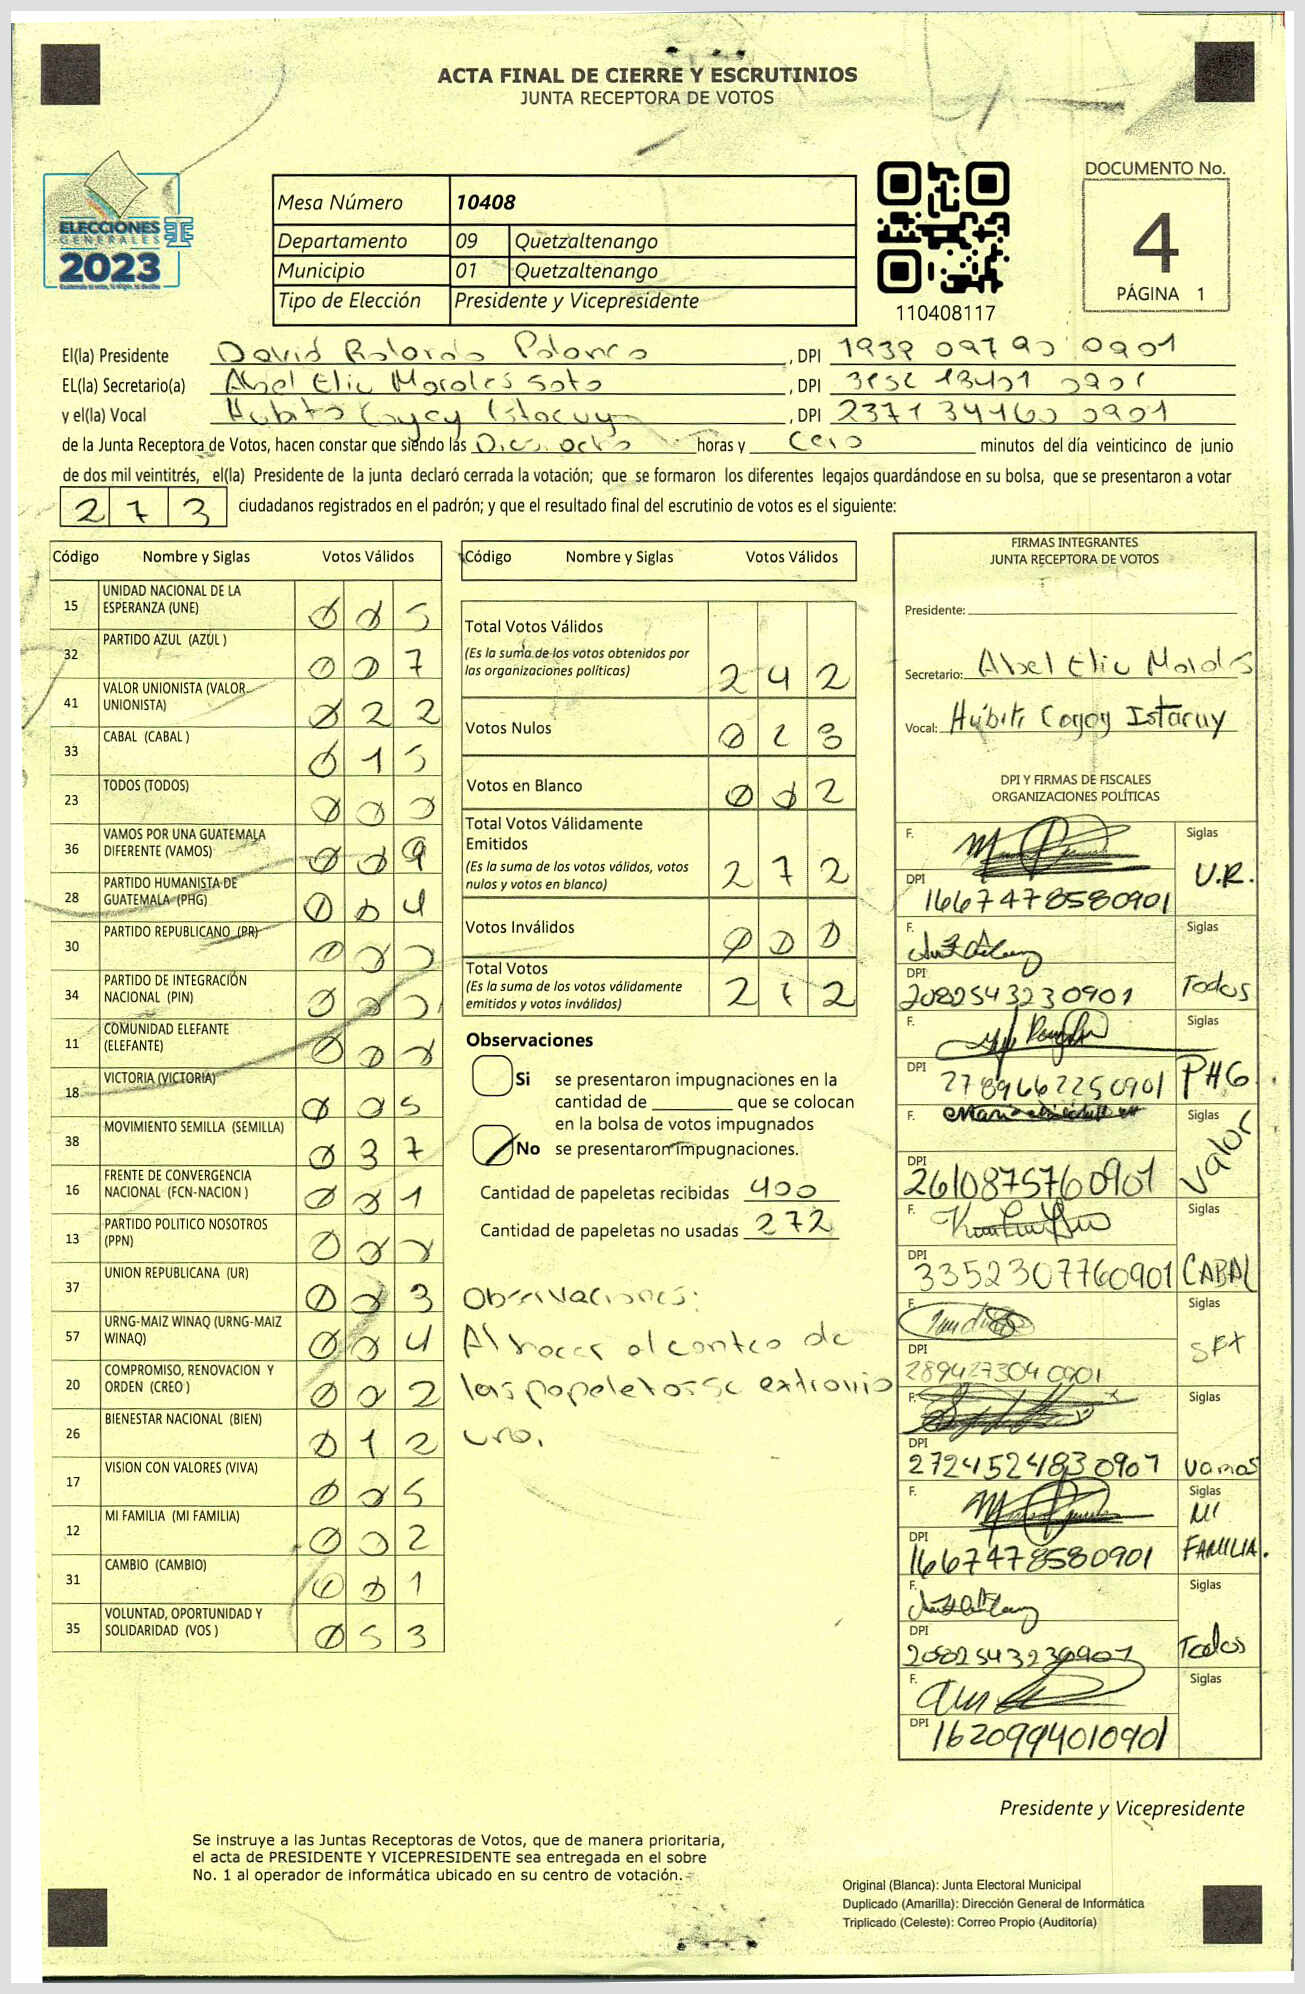 ACTA FINAL DE CIERRE Y ESCRUTINIOS
JUNTA RECEPTORA DE VOTOS
ELECCIONES
GENERALES
2023
Mesa Número 10408
Departamento 09 Quetzaltenango
Municipio 01 Quetzaltenango
Tipo de Elección Presidente y Vicepresidente
110408117
DOCUMENTO No.
4
PÁGINA 1
El(la) Presidente David Rolando Polanco , DPI 1939 09790 0901
EL(la) Secretario(a) Abel Eliu Morales Soto , DPI
y el(la) Vocal Húbita Cojoy Istacuy , DPI 2371 34160 0901
de la Junta Receptora de Votos, hacen constar que siendo las Dieciocho horas y Cero minutos del día veinticinco de junio
de dos mil veintitrés, el(la) Presidente de la junta declaró cerrada la votación; que se formaron los diferentes legajos guardándose en su bolsa, que se presentaron a votar
273 ciudadanos registrados en el padrón; y que el resultado final del escrutinio de votos es el siguiente:
Código Nombre y Siglas Votos Válidos
15 UNIDAD NACIONAL DE LA ESPERANZA (UNE) 0 0 5
32 PARTIDO AZUL (AZUL ) 0 0 7
41 VALOR UNIONISTA (VALOR UNIONISTA) 0 2 2
33 CABAL (CABAL ) 0 1 5
23 TODOS (TODOS) 0 0 0
36 VAMOS POR UNA GUATEMALA DIFERENTE (VAMOS) 0 0 9
28 PARTIDO HUMANISTA DE GUATEMALA (PHG) 0 0 4
30 PARTIDO REPUBLICANO (PR) 0 0 0
34 PARTIDO DE INTEGRACIÓN NACIONAL (PIN) 0 0 0
11 COMUNIDAD ELEFANTE (ELEFANTE) 0 0 0
18 VICTORIA (VICTORIA) 0 0 5
38 MOVIMIENTO SEMILLA (SEMILLA) 0 3 7
16 FRENTE DE CONVERGENCIA NACIONAL (FCN-NACION ) 0 0 1
13 PARTIDO POLITICO NOSOTROS (PPN) 0 0 0
37 UNION REPUBLICANA (UR) 0 0 3
57 URNG-MAIZ WINAQ (URNG-MAIZ WINAQ) 0 0 4
20 COMPROMISO, RENOVACION Y ORDEN (CREO ) 0 0 2
26 BIENESTAR NACIONAL (BIEN) 0 1 2
17 VISION CON VALORES (VIVA) 0 0 5
12 MI FAMILIA (MI FAMILIA) 0 0 2
31 CAMBIO (CAMBIO) 0 0 1
35 VOLUNTAD, OPORTUNIDAD Y SOLIDARIDAD (VOS ) 0 5 3
Código Nombre y Siglas Votos Válidos
Total Votos Válidos 2 4 2
(Es la suma de los votos obtenidos por
las organizaciones políticas)
Votos Nulos 0 2 3
Votos en Blanco 0 0 2
Total Votos Válidamente
Emitidos
(Es la suma de los votos válidos, votos
nulos y votos en blanco) 2 7 2
Votos Inválidos 0 0 0
Total Votos
(Es la suma de los votos válidamente
emitidos y votos inválidos) 2 7 2
Observaciones
Si se presentaron impugnaciones en la
cantidad de ________ que se colocan
en la bolsa de votos impugnados
No se presentaron impugnaciones.
Cantidad de papeletas recibidas 400
Cantidad de papeletas no usadas 272
Observaciones:
Al hacer el conteo de
las papeletas se extravio
uno.
FIRMAS INTEGRANTES
JUNTA RECEPTORA DE VOTOS
Presidente:
Secretario: Abel Eliu Morales
Vocal: Húbita Cojoy Istacuy
DPI Y FIRMAS DE FISCALES
ORGANIZACIONES POLÍTICAS
F. Siglas
U.R.
DPI 1667478580901
F. Siglas
Todos
DPI 2082543230901
F. Siglas
PHG
DPI 2789662250901
F. Siglas
Valor
DPI 2610875760901
F. Siglas
CABAL
DPI 3352307760901
F. Siglas
DPI 2894273040901
F. Siglas
Vamos
DPI 2724524830901
F. Siglas
MI
FAMILIA.
DPI 1667478580901
F. Siglas
Todos
DPI 2082543230901
F. Siglas
DPI 1620994010901
Presidente y Vicepresidente
Se instruye a las Juntas Receptoras de Votos, que de manera prioritaria,
el acta de PRESIDENTE Y VICEPRESIDENTE sea entregada en el sobre
No. 1 al operador de informática ubicado en su centro de votación.
Original (Blanca): Junta Electoral Municipal
Duplicado (Amarilla): Dirección General de Informática
Triplicado (Celeste): Correo Propio (Auditoría)